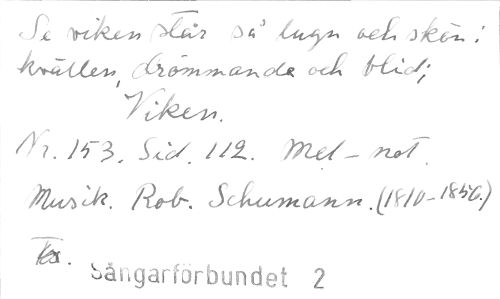 Se viken står så lugn och skön i
kvällen, drömmande och blid;
Viken.
Nr. 153. Sid. 112. Mel-not.
Musik. Rob. Schumann. (1810-1856.)
Sångarförbundet 2